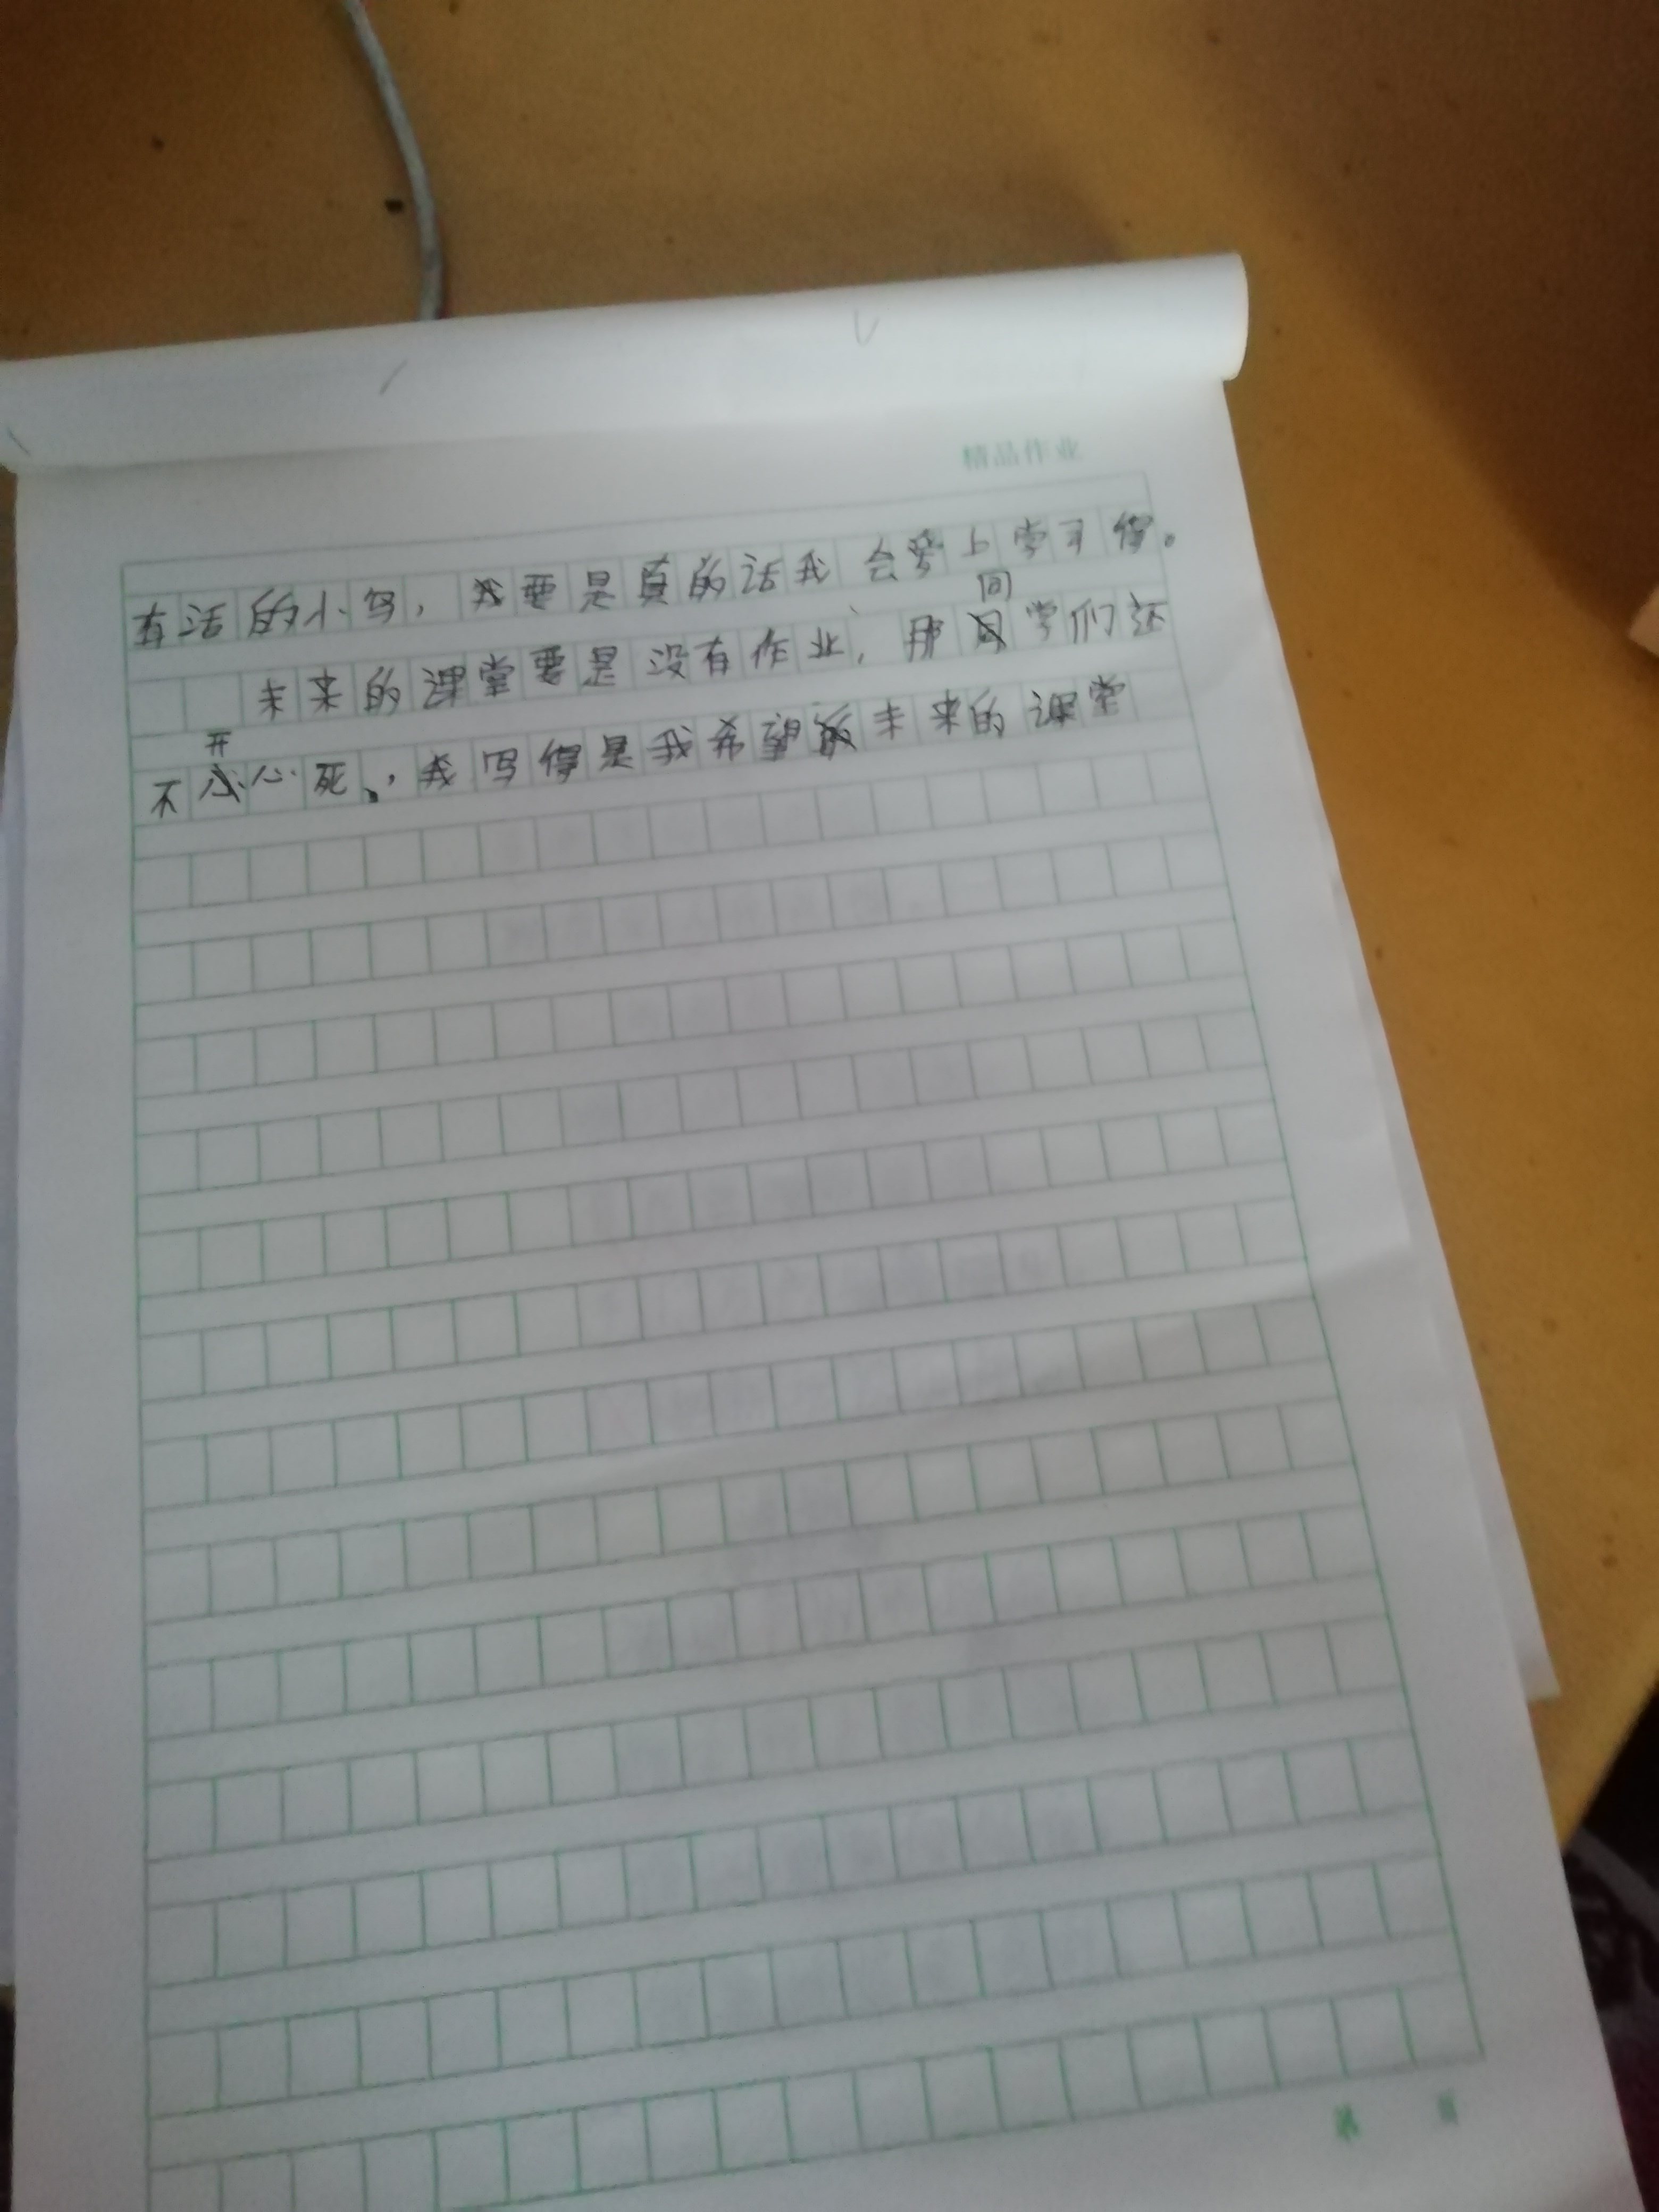 精品作业
有活的小鸟，我要是真的话我会爱上学习得。
未来的课堂要是没有作业，那同学们还
不开心死，我写得是我希望未来的课堂
第 页